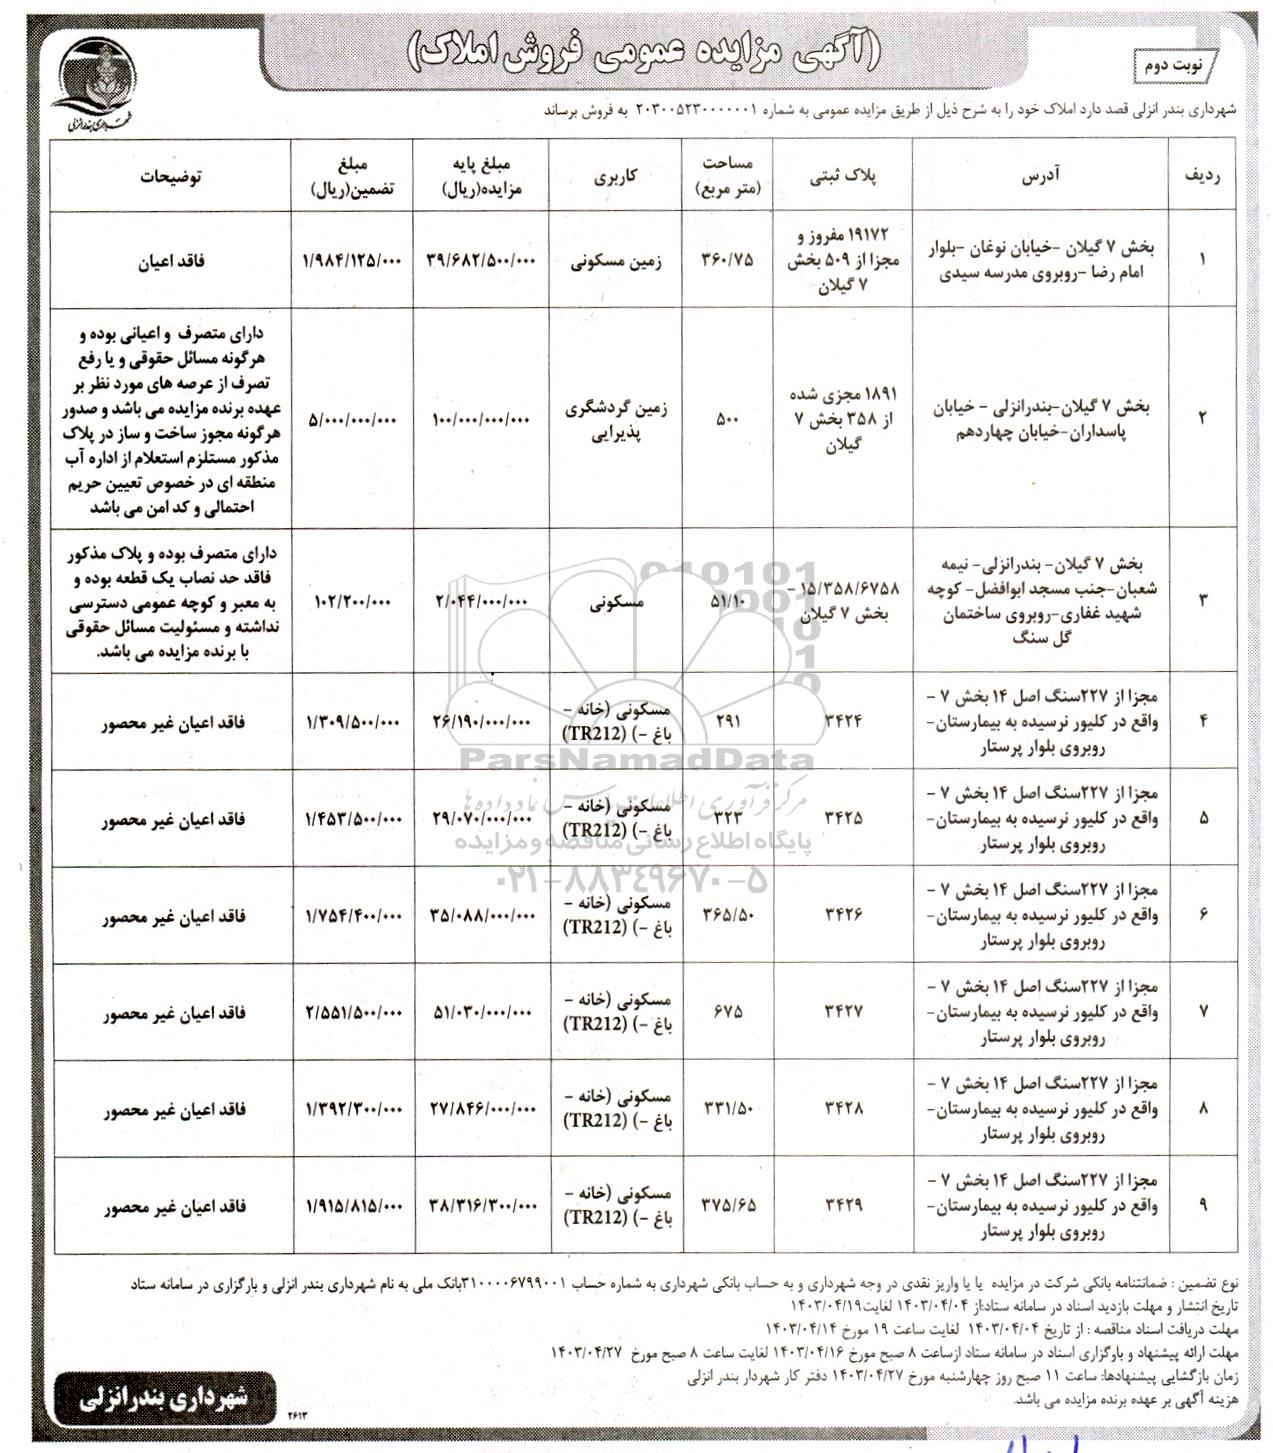 (آگهی مزایده عمومی فروش املاک)
نوبت دوم
شهرداری بندرانزلی
شهرداری بندر انزلی قصد دارد املاک خود را به شرح ذیل از طریق مزایده عمومی به شماره ۲۰۳۰۰۵۲۳۰۰۰۰۰۰۱ به فروش برساند
ردیف
آدرس
پلاک ثبتی
مساحت
(متر مربع)
کاربری
مبلغ پایه
مزایده(ریال)
مبلغ
تضمین(ریال)
توضیحات
۱
بخش ۷ گیلان -خیابان نوغان -بلوار
امام رضا -روبروی مدرسه سیدی
۱۹۱۷۲ مفروز و
مجزا از ۵۰۹ بخش
۷ گیلان
۳۶۰/۷۵
زمین مسکونی
۳۹/۶۸۲/۵۰۰/۰۰۰
۱/۹۸۴/۱۲۵/۰۰۰
فاقد اعیان
۲
بخش ۷ گیلان-بندرانزلی - خیابان
پاسداران-خیابان چهاردهم
۱۸۹۱ مجزی شده
از ۳۵۸ بخش ۷
گیلان
۵۰۰
زمین گردشگری
پذیرایی
۱۰۰/۰۰۰/۰۰۰/۰۰۰
۵/۰۰۰/۰۰۰/۰۰۰
دارای متصرف و اعیانی بوده و
هرگونه مسائل حقوقی و یا رفع
تصرف از عرصه های مورد نظر بر
عهده برنده مزایده می باشد و صدور
هرگونه مجوز ساخت و ساز در پلاک
مذکور مستلزم استعلام از اداره آب
منطقه ای در خصوص تعیین حریم
احتمالی و کد امن می باشد
۳
بخش ۷ گیلان- بندرانزلی- نیمه
شعبان-جنب مسجد ابوافضل- کوچه
شهید غفاری-روبروی ساختمان
گل سنگ
۱۵/۳۵۸/۶۷۵۸ -
بخش ۷ گیلان
۵۱/۱۰
مسکونی
۲/۰۴۴/۰۰۰/۰۰۰
۱۰۲/۲۰۰/۰۰۰
دارای متصرف بوده و پلاک مذکور
فاقد حد نصاب یک قطعه بوده و
به معبر و کوچه عمومی دسترسی
نداشته و مسئولیت مسائل حقوقی
با برنده مزایده می باشد.
۴
مجزا از ۲۲۷سنگ اصل ۱۴ بخش ۷ -
واقع در کلیور نرسیده به بیمارستان-
روبروی بلوار پرستار
۳۴۲۴
۲۹۱
مسکونی (خانه -
باغ -) (TR212)
۲۶/۱۹۰/۰۰۰/۰۰۰
۱/۳۰۹/۵۰۰/۰۰۰
فاقد اعیان غیر محصور
۵
مجزا از ۲۲۷سنگ اصل ۱۴ بخش ۷ -
واقع در کلیور نرسیده به بیمارستان-
روبروی بلوار پرستار
۳۴۲۵
۳۲۳
مسکونی (خانه -
باغ -) (TR212)
۲۹/۰۷۰/۰۰۰/۰۰۰
۱/۴۵۳/۵۰۰/۰۰۰
فاقد اعیان غیر محصور
۶
مجزا از ۲۲۷سنگ اصل ۱۴ بخش ۷ -
واقع در کلیور نرسیده به بیمارستان-
روبروی بلوار پرستار
۳۴۲۶
۳۶۵/۵۰
مسکونی (خانه -
باغ -) (TR212)
۳۵/۰۸۸/۰۰۰/۰۰۰
۱/۷۵۴/۴۰۰/۰۰۰
فاقد اعیان غیر محصور
۷
مجزا از ۲۲۷سنگ اصل ۱۴ بخش ۷ -
واقع در کلیور نرسیده به بیمارستان-
روبروی بلوار پرستار
۳۴۲۷
۶۷۵
مسکونی (خانه -
باغ -) (TR212)
۵۱/۰۳۰/۰۰۰/۰۰۰
۲/۵۵۱/۵۰۰/۰۰۰
فاقد اعیان غیر محصور
۸
مجزا از ۲۲۷سنگ اصل ۱۴ بخش ۷ -
واقع در کلیور نرسیده به بیمارستان-
روبروی بلوار پرستار
۳۴۲۸
۳۳۱/۵۰
مسکونی (خانه -
باغ -) (TR212)
۲۷/۸۴۶/۰۰۰/۰۰۰
۱/۳۹۲/۳۰۰/۰۰۰
فاقد اعیان غیر محصور
۹
مجزا از ۲۲۷سنگ اصل ۱۴ بخش ۷ -
واقع در کلیور نرسیده به بیمارستان-
روبروی بلوار پرستار
۳۴۲۹
۳۷۵/۶۵
مسکونی (خانه -
باغ -) (TR212)
۳۸/۳۱۶/۳۰۰/۰۰۰
۱/۹۱۵/۸۱۵/۰۰۰
فاقد اعیان غیر محصور
ParsNamadData
مرکز فرآوری اطلاعات پارس نماد داده ها
پایگاه اطلاع رسانی مناقصه و مزایده
۰۲۱-۸۸۳۴۹۶۷۰-۵
نوع تضمین : ضمانتنامه بانکی شرکت در مزایده یا یا واریز نقدی در وجه شهرداری و به حساب بانکی شهرداری به شماره حساب ۳۱۰۰۰۰۶۷۹۹۰۰۱بانک ملی به نام شهرداری بندر انزلی و بارگزاری در سامانه ستاد
تاریخ انتشار و مهلت بازدید اسناد در سامانه ستاد:از ۱۴۰۳/۰۴/۰۴ لغایت۱۴۰۳/۰۴/۱۹
مهلت دریافت اسناد مناقصه : از تاریخ ۱۴۰۳/۰۴/۰۴ لغایت ساعت ۱۹ مورخ ۱۴۰۳/۰۴/۱۴
مهلت ارائه پیشنهاد و بارگزاری اسناد در سامانه ستاد ازساعت ۸ صبح مورخ ۱۴۰۳/۰۴/۱۶ لغایت ساعت ۸ صبح مورخ ۱۴۰۳/۰۴/۲۷
زمان بازگشایی پیشنهادها: ساعت ۱۱ صبح روز چهارشنبه مورخ ۱۴۰۳/۰۴/۲۷ دفتر کار شهردار بندر انزلی
هزینه آگهی بر عهده برنده مزایده می باشد.
شهرداری بندرانزلی
۲۶۱۳